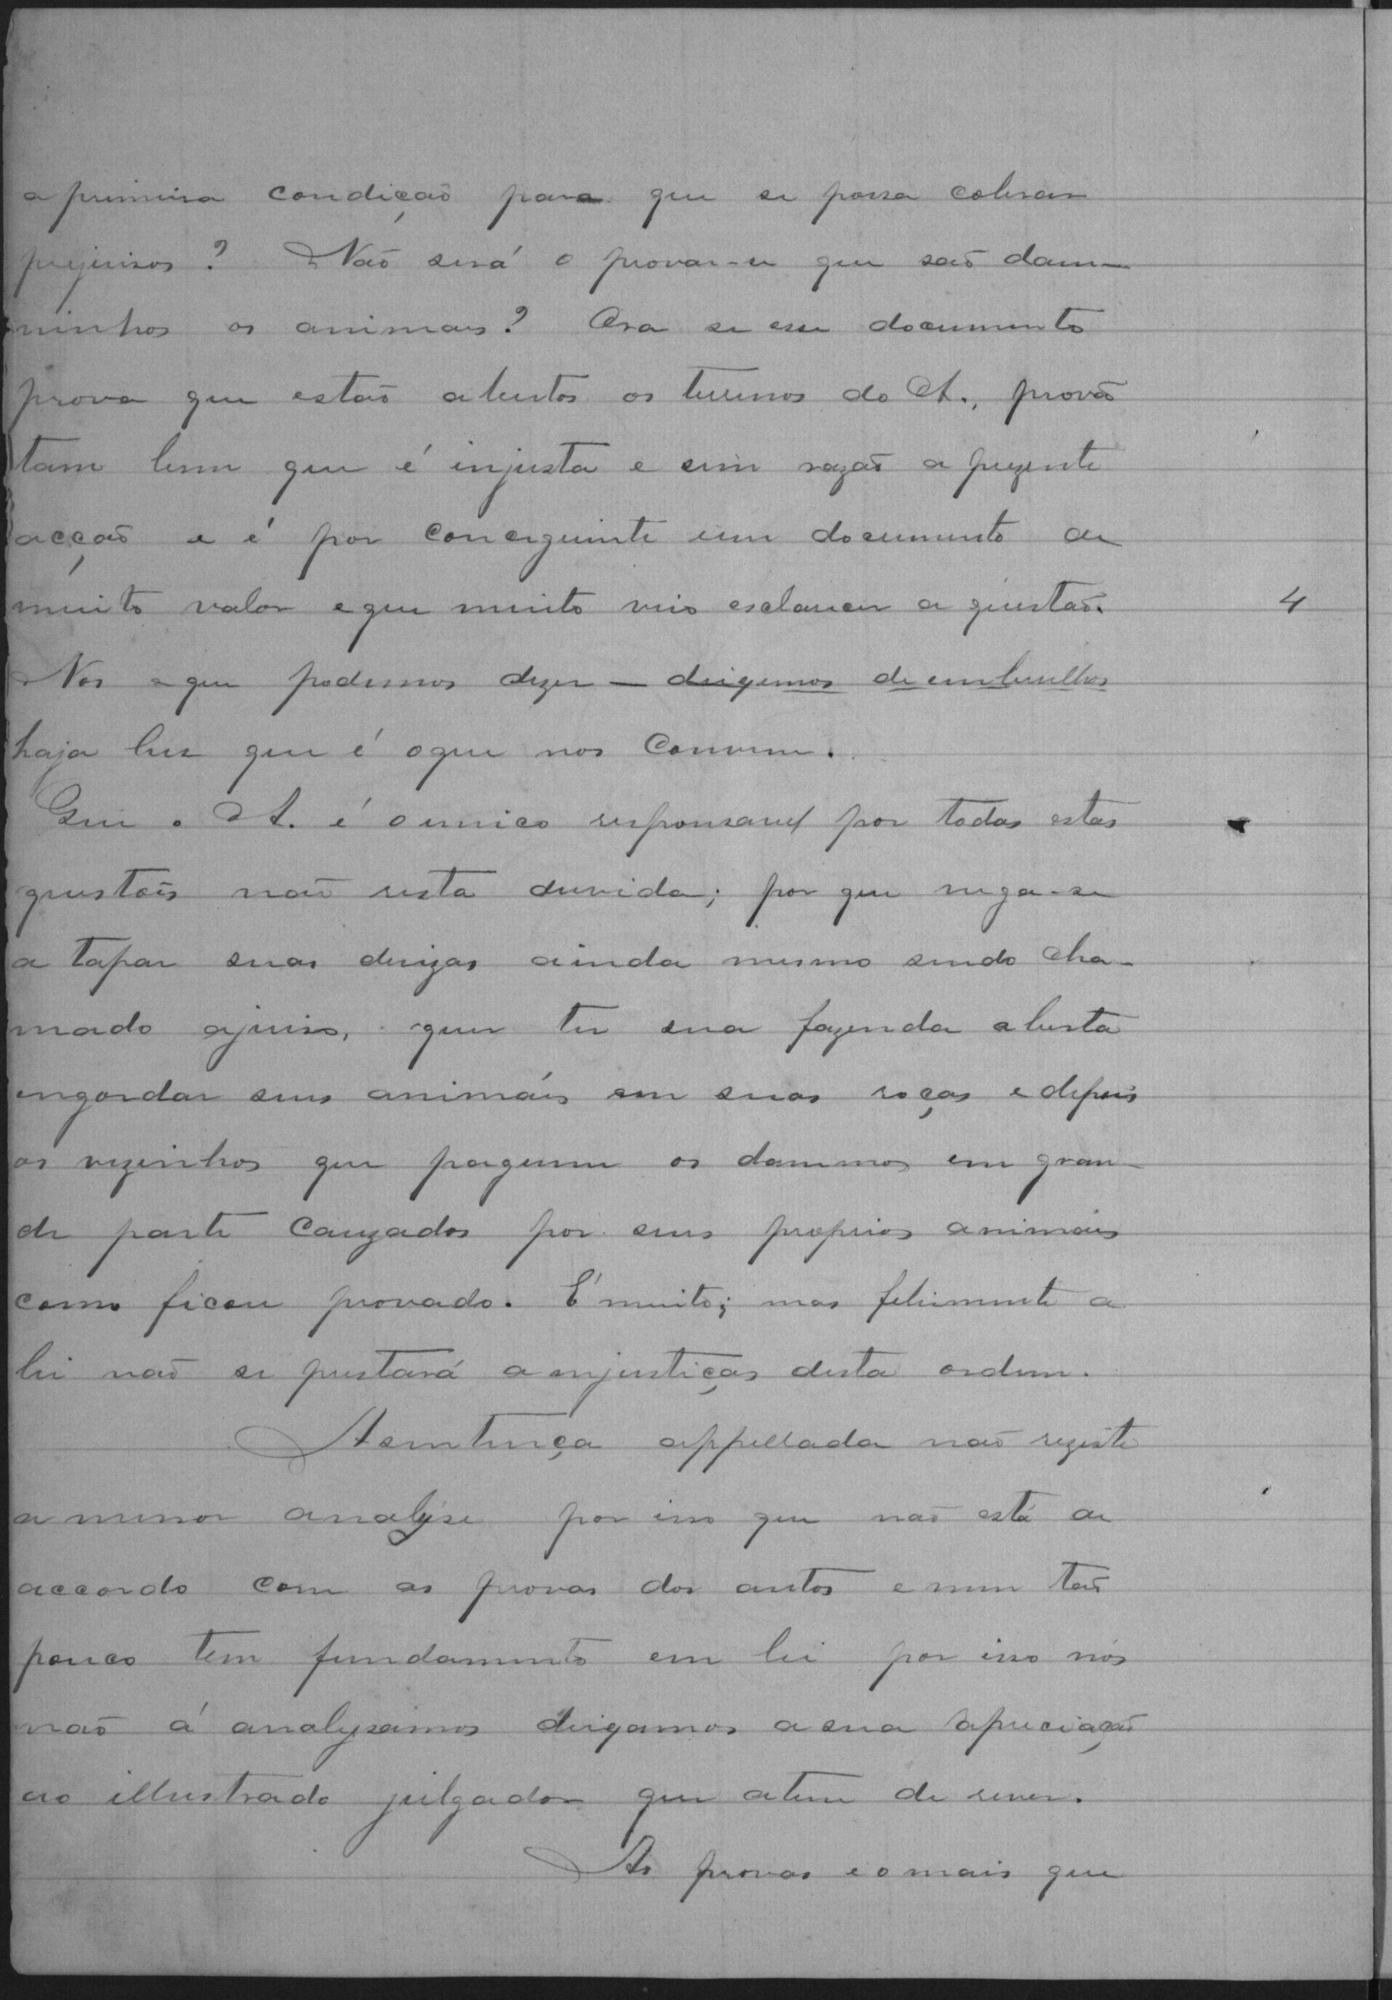 a primeira condição para que se possa cobrar
prejuisos? Não será o provar-se que são dam-
ninhos os animaes? Ora se esse documento
prova que estão abertos os terrenos do A., provão
tam bem que é injusta e sem razão a prezente
acção e é por conceguinte um documento de
muito valor e que muito veio esclarecer a questão.
4
Nos e que podemos dizer —
haja luz que é o que nos convem.
Que o A. é o unico responsavel por todas estas
questões não resta duvida; por que nega-se
a tapar suas divizas ainda mesmo sendo cha-
mado ajuiso, quer ter sua fazenda aberta
engordar seus animáis em suas roças e depois
os vizinhos que paguem os dammos em gran-
de parte cauzados por seus proprios animais
como ficou provado. É muito; mas felismente a
lei não se prestará a injustiças desta ordem.
A sentença appellada não reziste
a menor analyse por isso que não está de
accordo com as provas dos autos e nem tão
pouco tem fundamento em lei por isso nós
não á analysamos deixamos a sua apreciação
ao illustrado julgador que a tem de rever.
As provas e o mais que